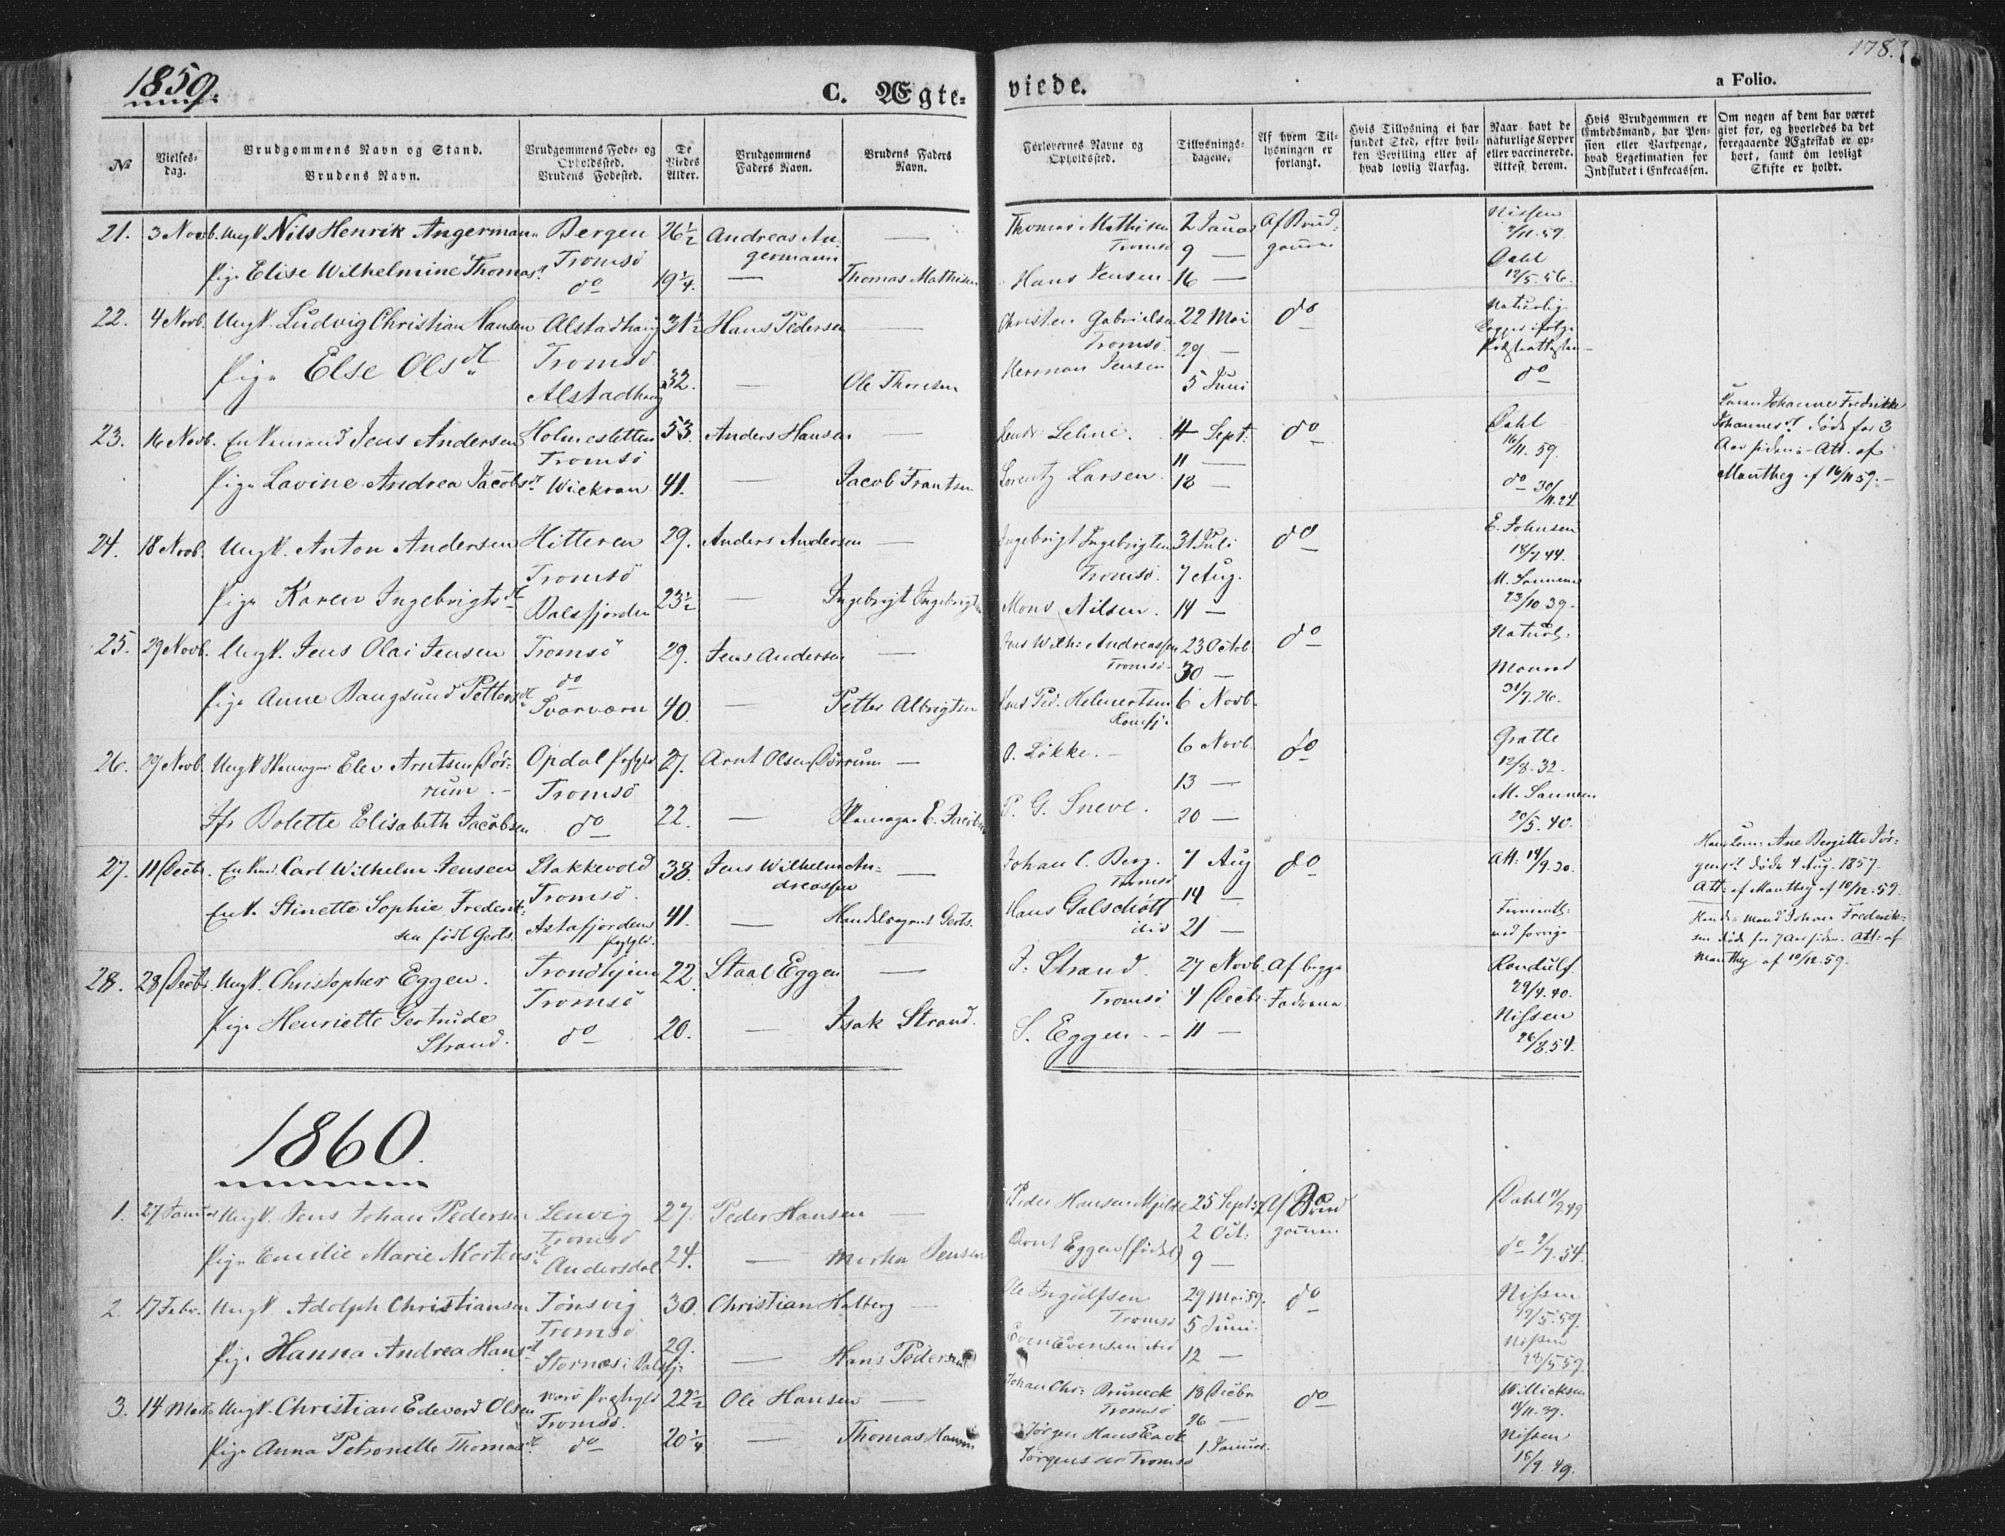 1859.
178.
C. Ægte-
viede.
a Folio.
№
Vielses-
dag.
Brudgommens Navn og Stand.
Brudens Navn.
Brudgommens Føde- og
Opholdssted.
Brudens Fødested.
De
Viedes
Alder.
Brudgommens
Faders Navn.
Brudens Faders
Navn.
Forlovernes Navne og
Opholdssted.
Tillysnings-
dagene.
Af hvem Til-
lysningen er
forlangt.
Hvis Tillysning ei har
fundet Sted, efter hvil-
ken Bevilling eller af
hvad lovlig Aarsag.
Naar havt de
naturlige Kopper
eller vaccinerede.
Attest derom.
Hvis Brudgommen er
Embedsmand, har Pen-
sion eller Vartpenge,
hvad Legitimation for
Indskudet i Enkecassen.
Om nogen af dem har været
gift før, og hvorledes da det
foregaaende Ægteskab er op-
hørt, samt om lovligt
Skifte er holdt.
21. 3 Novb. Ungk. Nils Henrik Angermann Bergen 26½ Andreas An- — Thomas Mathisen 2 Januar Af Brud- Nissen
Tromsø germann Tromsø 9 — gomme 2/11.59.
Pige Elise Wilhelmine Thomasd. do 19¼. — Thomas Mathisen Hans Jensen 16 — Dahl
12/5.56.
22. 4 Novb. Ungk. Ludvig Christian Hansen Alstadhaug 31½ Hans Pedersen — Christen Gabrielsen 22 Mai do Naturlig
Tromsø Tromsø. 29 —
Pige Else Olsdt. Alstadhaug 32. — Ole Thomsen Herman Jensen 5 Juni do
23. 16 Novb. Enkemand Jens Andersen Holmestetten 53. Anders Hansen — Lehne. 4 Sept. do Dahl Johanne Fredrikke
Tromsø 11 — 16/11.59. Johannesd. døde for 3
Aar siden. Att. af
Pige Lavine Andrea Jacobsdt. Wickran 41. — Jacob Frantsen Lorentz Larsen 18 — do 30/11.24. Mantheg af 16/11 59.
24. 18 Novb. Ungk. Anton Andersen Hitteren 29. Anders Andersen — Ingebrigt Ingebrigtsen 31 Juli do E. Johnsen
Tromsø Tromsø. 7 Aug. 18/7 44.
Pige Karen Ingebrigtsdt. Balsfjorden 23½ — Ingebrigt Ingebrigtsen Mons Nilsen. 14 — 23/10 39.
25. 29 Novb. Ungk. Jens Olai Jensen Tromsø 29. Jens Andersen — Jens Wilh: Andreassen 23 Octob. do Naturl:
do Tromsø. 30 — Monrad
Pige Anne Bangsund Pettersdt. Svarværn 40. — Petter Albrigtsen Hans Ped. Helmertsen 6 Novb. 31/7.26.
26. 29 Novb. Ungk. Skomager Elev Arntsen Dør- Opdal Prgjld 27. Arnt Olsen Dørrum — O. Løkke. 6 Novb. do Grøtte
rum. — Tromsø 13 — 12/8.32.
Jfr Bolette Elisabeth Jacobsen do 22. — Skomager E. Jacobsen P. G. Sneve. 20 — 20/5.40.
27. 11 Decbr. Enkem. Carl Wilhelm Jensen Stakkevold 38. Jens Wilhelm An- — Johan C. Berg. 7 Aug do Att: 14/9.20. Ane Bergitte Jør-
Tromsø. dreassen Tromsø 14 — gensd. døde 4 Aug. 1857.
Att: af Mantheg af 10/12.59.
Enk. Stinette Sophie Frederik- Astafjordens 41. — Handelsagent Gerts. Hans Galschøtt 21 — Hendes Mand Johan Frederik-
sen født Gerts. Prgjld. ibid sen døde for 7 Aar siden. Att: af
Mantheg af 10/12.59.
28. 28 Decbr. Ungk. Christopher Eggen. Trondhjem 22. Staal Eggen — J. Strand. 27 Novb. Af begge Randulf
Tromsø Tromsø 4 Decbr. Fædrene 29/4.40.
Pige Henriette Gertrude do 20. — Isak Strand. S. Eggen. — 11 — Nissen
Strand. 26/8.54.
1860.
1. 27 Januar Ungk. Jens Johan Pedersen Lenvig 27. Peder Hansen — Peder Hansen Mjelde 25 Sept: Af Brud Dahl 11/7 49
Tromsø 2 Oct: gomme
Pige Emilie Marie Mortensdt. Andersdal 24. — Morten Jensen Arnt Eggen 9 — do 2/7.54.
2. 17 Febr. Ungk. Adolph Christiansen Tønsvig 30. Christian Holberg — Ole Ingulfsen 29 Mai 59. do Nissen
Tromsø Tromsø 5 Juni 29/5.59.
Pige Hanna Andrea Hansdt. Stornæs i Balsfj. 29. — Hans Pedersen Even Evensen ibid 12 — Nissen
28/5 59.
3. 14 Marts Ungk. Christian Edevard Olsen Prgjld 22½ Ole Hansen — Johan Chr: Bruneck 18 Decbr do Willicksen
Tromsø. Tromsø 26 — 11/11.39.
Pige Anna Petronelle Thomasdt. do 20¼ — Thomas Hansen Jørgen Hans 1 Januar. Nissen
Tromsø 18/9.49.